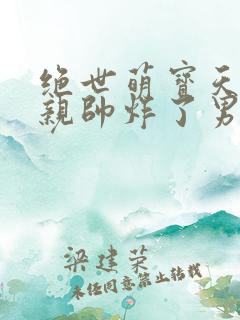 绝世萌寶天
親帥炸了男
梁建荣
未经同意禁止转载